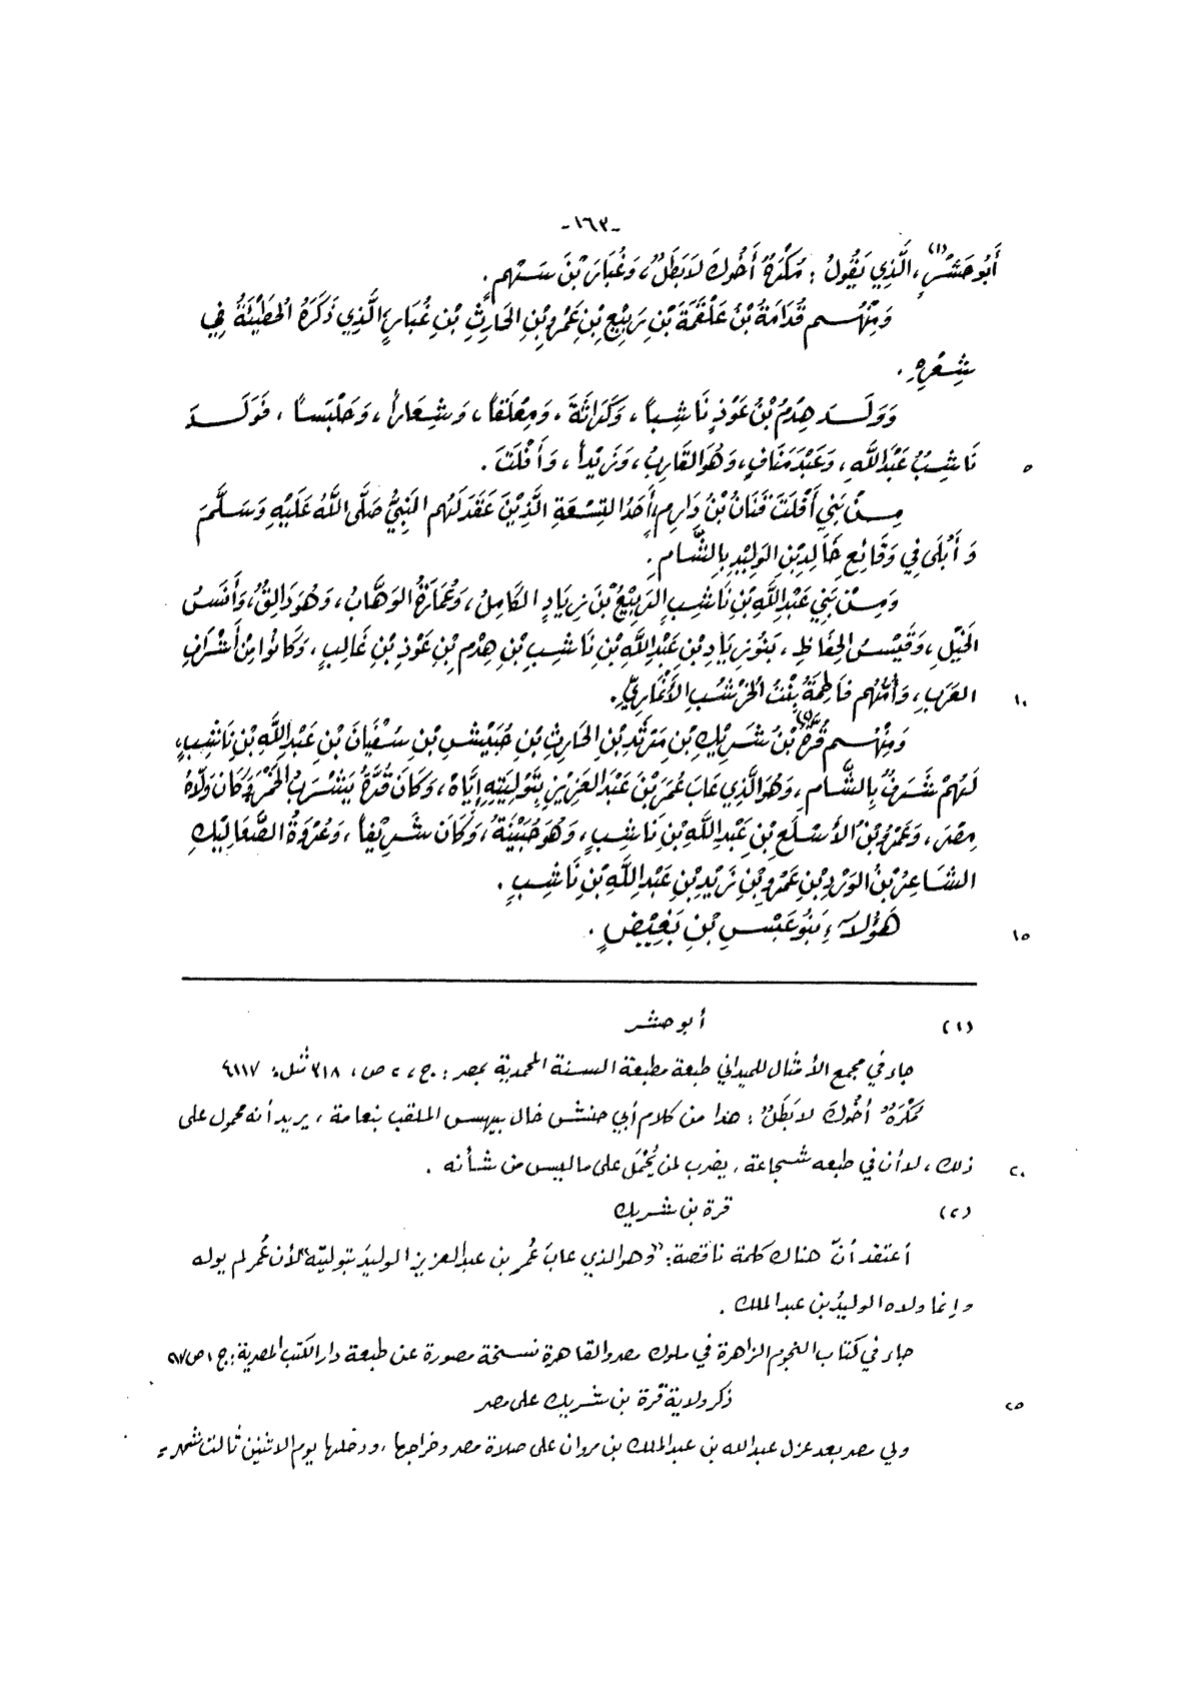 -١٦٣-
أَبُو حَشْرٍ(١)، الَّذِي يَقُولُ : مُكْرَهٌ أَخُوكَ لَا بَطَلٌ، وَغُبَارَ بْنَ سَهْمٍ.
وَمِنْهُم قُدَامَةُ بْنُ عَلْقَمَةَ بْنِ رَبِيْعِ بْنِ عَمْرِو بْنِ الحَارِثِ بْنِ غُبَارٍ، الَّذِي ذَكَرَهُ الحُطَيْئَةُ فِي
شِعْرِهِ.
وَوَلَدَ هِدْمُ بْنُ عَوْذٍ نَاشِباً، وَكَرَاثَةَ، وَمِعْلَقاً، وَشِعَاراً، وَحَلْبَساً، فَوَلَدَ
نَاشِبُ عَبْدَ اللَّهِ، وَعَبْدَ مَنَافٍ، وَهُوَ القَارِبُ، وَزَيْداً، وَأَفْلَتَ. ٥
مِنْ بَنِي أَفْلَتَ قَنَانُ بْنُ دَارِمٍ، أَحَدُ التِّسْعَةِ الَّذِيْنَ عَقَدَ لَهُم النَّبِيُّ صَلَّى اللَّهُ عَلَيْهِ وَسَلَّمَ
وَأَبْلَى فِي وَقَائِعِ خَالِدِ بْنِ الوَلِيْدِ بِالشَّامِ.
وَمِنْ بَنِي عَبْدِ اللَّهِ بْنِ نَاشِبٍ الرَّبِيْعُ بْنُ زِيَادٍ الكَامِلُ، وَعُمَارَةُ الوَهَّابُ، وَهُوَ دَالِقٌ، وَأَنَسُ
الخَيْلِ، وَقَيْسُ الحِفَاظِ، بَنُو زِيَادِ بْنِ عَبْدِ اللَّهِ بْنِ نَاشِبِ بْنِ هِدْمِ بْنِ عَوْذِ بْنِ غَالِبٍ، وَكَانُوا مِنْ أَشْرَافِ
العَرَبِ، وَأُمُّهُم فَاطِمَةُ بِنْتُ الخُرْشُبِ الأَنْمَارِيِّ. ١٠
وَمِنْهُم قُرَّةُ(٢) بْنُ شَرِيْكِ بْنِ مَرْثَدِ بْنِ الحَارِثِ بْنِ حُبَيْشِ بْنِ سُفْيَانَ بْنِ عَبْدِ اللَّهِ بْنِ نَاشِبٍ،
لَهُمْ شَرَفٌ بِالشَّامِ، وَهُوَ الَّذِي عَابَ عُمَرَ بْنَ عَبْدِ العَزِيْزِ بِتَوْلِيَتِهِ إِيَّاهُ، وَكَانَ قُرَّةُ يَشْرَبُ الخَمْرَ وَكَانَ وَلَّاهُ
مِصْرَ، وَعَمْرُو بْنُ الأَسْلَعِ بْنِ عَبْدِ اللَّهِ بْنِ نَاشِبٍ، وَهُوَ حُبَيْنَةُ، وَكَانَ شَرِيْفاً، وَعُرْوَةُ الصَّعَالِيْكِ
الشَّاعِرُ بْنُ الوَرْدِ بْنِ عَمْرِو بْنِ زَيْدِ بْنِ عَبْدِ اللَّهِ بْنِ نَاشِبٍ.
هَؤُلَاءِ بَنُو عَبْسِ بْنِ بَغِيْضٍ. ١٥
(١) أبو حشر
جاء في مجمع الأمثال للميداني طبعة مطبعة السنة المحمدية بمصر : ج، ٢ ص، ٣١٨ مثل: ٤١١٧
مُكْرَهٌ أخُوكَ لا بَطَلٌ : هذا من كلام أبي حنش خال بيهس الملقب بنعامة، يريد أنه محمول على
ذلك، لا أن في طبعه شجاعة. يضرب لمن يُحْمَل على ما ليس من شأنه. ٢٠
(٢) قرة بن شريك
أعتقد أنّ هناك كلمة ناقصة: "وهو الذي عابَ عُمر بن عبد العزيز الوليدَ بتوليته" لأن عُمر لم يوله
وإنما ولاه الوليدُ بن عبد الملك.
جاء في كتاب النجوم الزاهرة في ملوك مصر والقاهرة نسخة مصورة عن طبعة دار الكتب المصرية: ج ١ ص
ذكر ولاية قرة بن شريك على مصر ٢٥
ولي مصر بعد عزل عبد الله بن عبد الملك بن مروان على صلاة مصر وخراجها، ودخلها يوم الاثنين ثالث شهر =